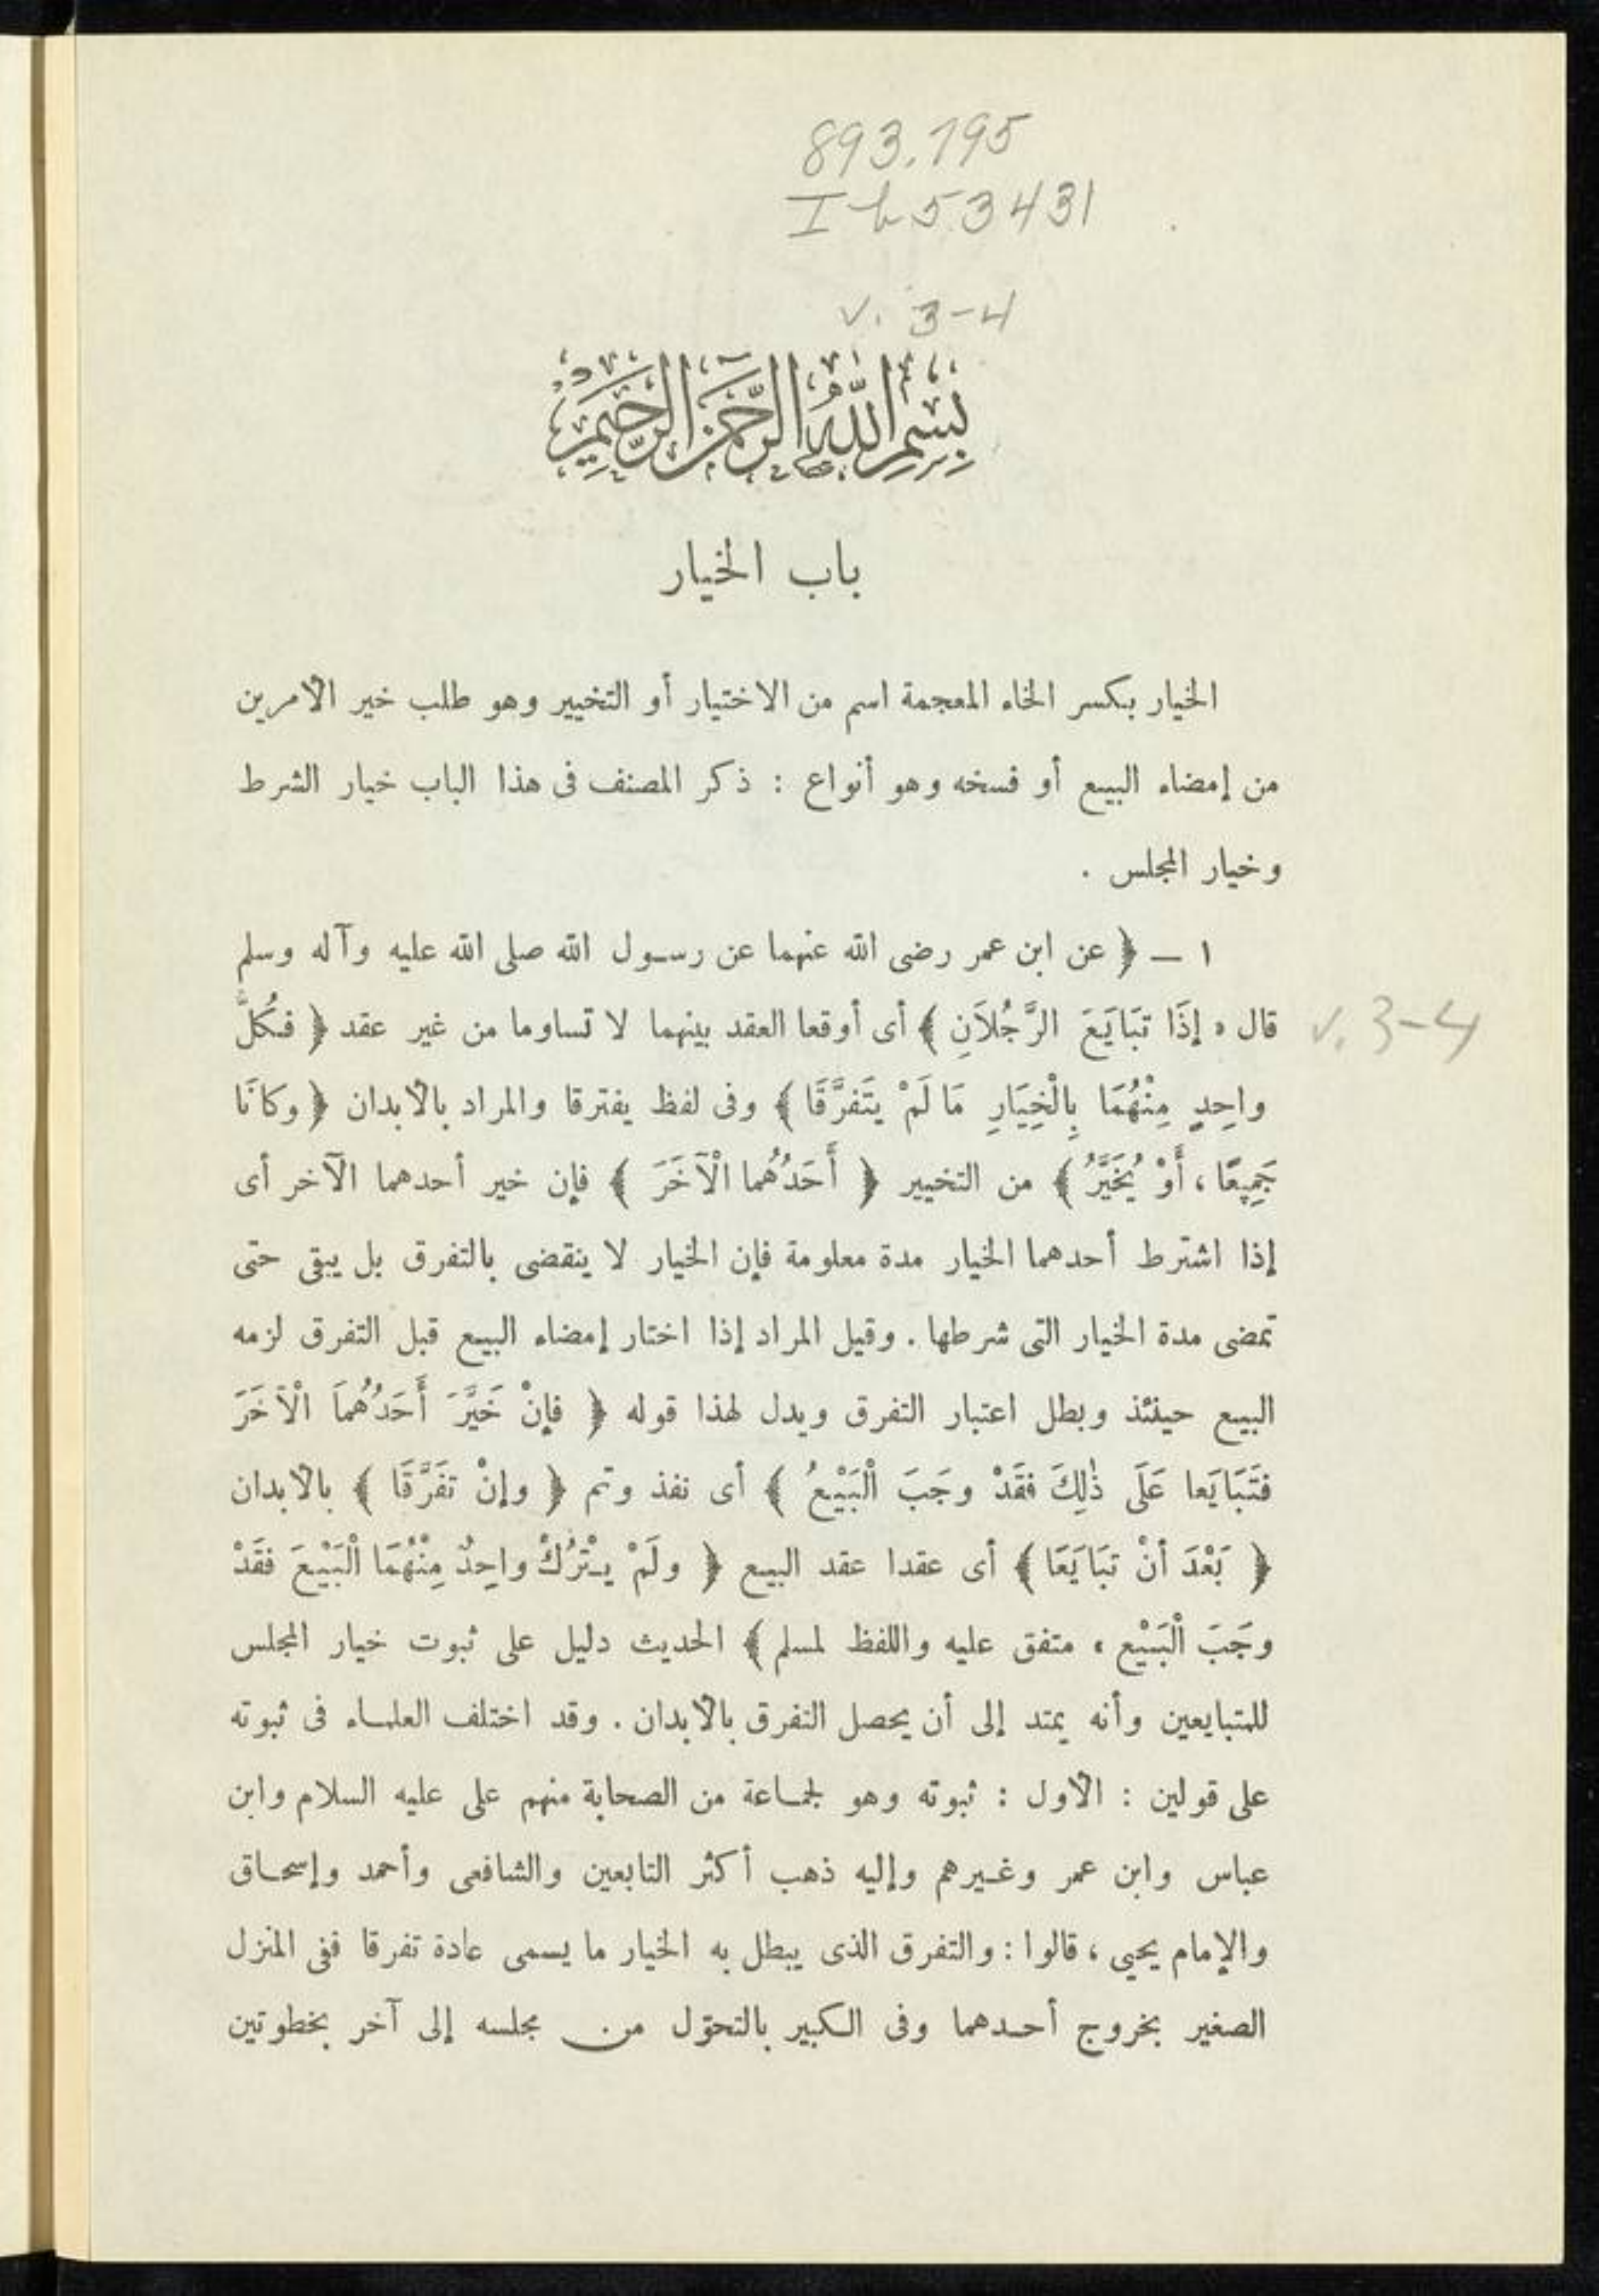 893.795
Ib53431
v. 3-4
بِسْمِ اللَّهِ الرَّحْمَنِ الرَّحِيمِ
باب الخيار
الخيار بكسر الخاء المعجمة اسم من الاختيار أو التخيير وهو طلب خير الأمرين
من إمضاء البيع أو فسخه وهو أنواع : ذكر المصنف فى هذا الباب خيار الشرط
وخيار المجلس .
١ – ﴿ عن ابن عمر رضى الله عنهما عن رسول الله صلى الله عليه وآله وسلم
قال « إذَا تبَايَعَ الرَّجُلاَنِ ﴾ أى أوقعا العقد بينهما لا تساوما من غير عقد ﴿ فَكُلُّ
v. 3-4
واحِدٍ مِنْهُمَا بِالْخِيَارِ مَا لَمْ يتَفرَّقَا ﴾ وفى لفظ يفترقا والمراد بالأبدان ﴿ وكانَا
جَمِيعًا ، أَوْ يُخَيَّرُ ﴾ من التخيير ﴿ أَحَدُهُما الْآخَرَ ﴾ فإن خير أحدهما الآخر أى
إذا اشترط أحدهما الخيار مدة معلومة فإن الخيار لا ينقضى بالتفرق بل يبقى حتى
تمضى مدة الخيار التى شرطها . وقيل المراد إذا اختار إمضاء البيع قبل التفرق لزمه
البيع حينئذ وبطل اعتبار التفرق ويدل لهذا قوله ﴿ فإنْ خَيَّرَ أَحَدُهُمَا الْآخَرَ
فتَبَايَعا عَلَى ذٰلِكَ فقَدْ وجَبَ الْبَيْعُ ﴾ أى نفذ وتم ﴿ وإنْ تفَرَّقَا ﴾ بالأبدان
﴿ بَعْدَ أنْ تبَايَعَا ﴾ أى عقدا عقد البيع ﴿ ولَمْ يـتْرُكْ واحِدٌ مِنْهُمَا الْبَيْعَ فقَدْ
وجَبَ الْبَيْع » متفق عليه واللفظ لمسلم ﴾ الحديث دليل على ثبوت خيار المجلس
للمتبايعين وأنه يمتد إلى أن يحصل التفرق بالأبدان . وقد اختلف العلماء فى ثبوته
على قولين : الأول : ثبوته وهو لجماعة من الصحابة منهم على عليه السلام وابن
عباس وابن عمر وغيرهم وإليه ذهب أكثر التابعين والشافعى وأحمد وإسحاق
والإمام يحيى ، قالوا : والتفرق الذى يبطل به الخيار ما يسمى عادة تفرقا ففى المنزل
الصغير بخروج أحدهما وفى الكبير بالتحوّل من مجلسه إلى آخر بخطوتين